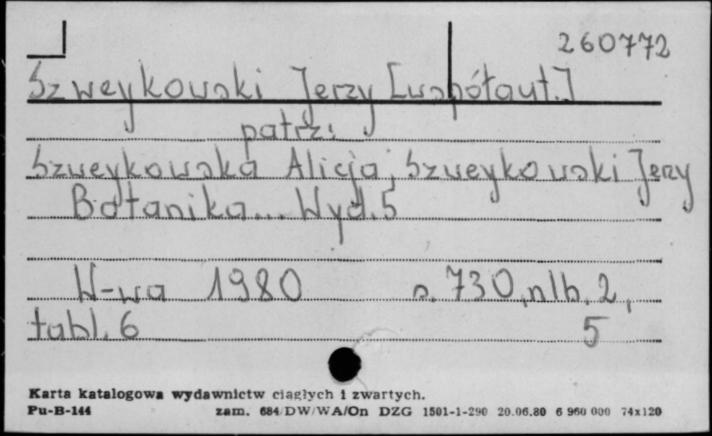 260772
Szweykowski Jerzy [współaut.]
patrz:
Szweykowska Alicja, Szweykowski Jerzy
Botanika... Wyd. 5
W-wa 1980 s. 730, nlb. 2,
tabl. 6 5
Karta katalogowa wydawnictw ciągłych i zwartych.
Pu-B-144 zam. 684/DW/WA/On DZG 1501-1-290 20.06.80 6 960 000 74x120